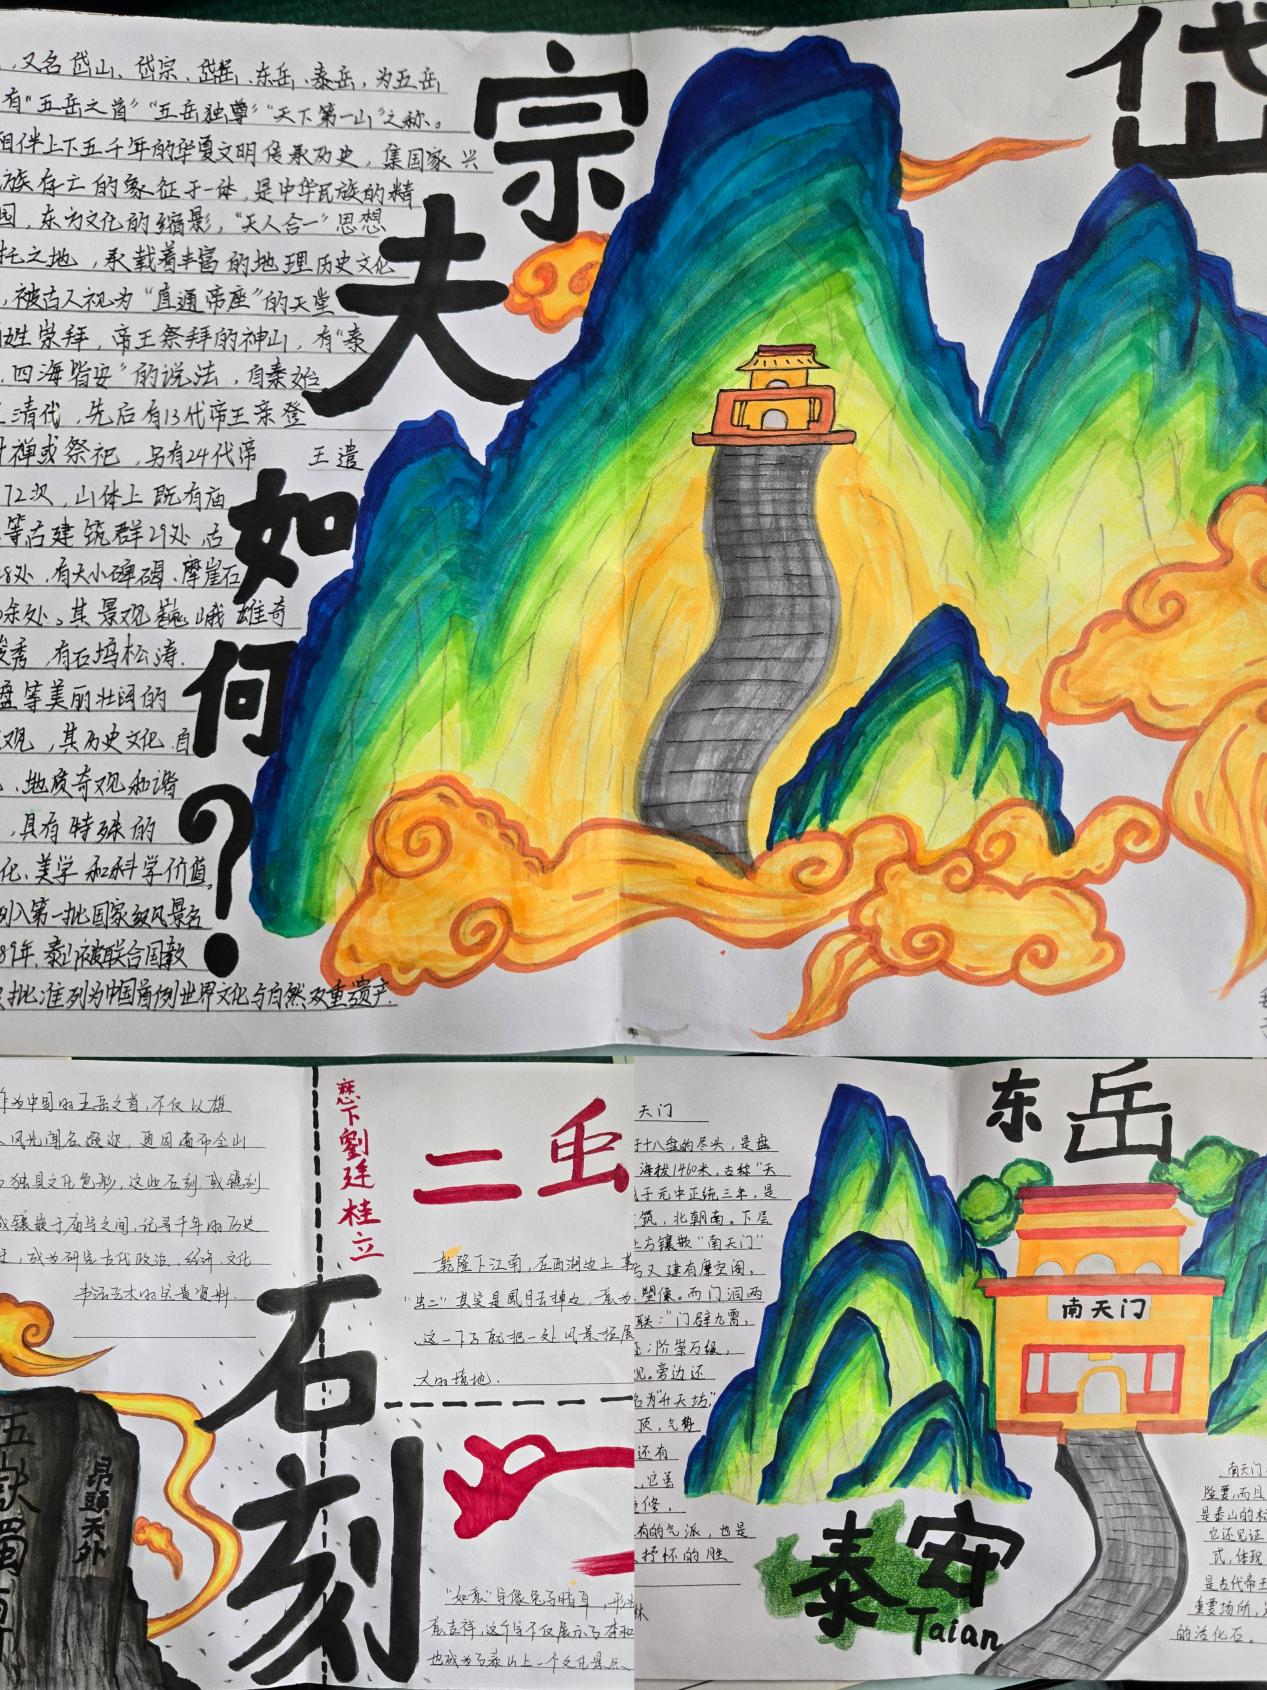 岱
宗
夫
如
何
?
，又名岱山、岱宗、岱岳、东岳、泰岳，为五岳
有“五岳之首”“五岳独尊”“天下第一山”之称。
相伴上下五千年的华夏文明传承历史，集国家兴
族存亡的象征于一体，是中华民族的精
园，东方文化的缩影，“天人合一”思想
托之地，承载着丰富的地理历史文化
，被古人视为“直通帝座”的天堂
百姓崇拜，帝王祭拜的神山，有“泰
，四海皆安”的说法，自秦始
清代，先后有13代帝王亲登
封禅或祭祀，另有24代帝 王遣
72次，山体上既有庙
等古建筑群29处，古
8处，有大小碑碣、摩崖石
余处。其景观巍峨雄奇
峻秀，有石坞松涛.
盘等美丽壮阔的
观，其历史文化.自
、地质奇观和谐
，具有特殊的
化、美学和科学价值，
列入第一批国家级风景名
89年，泰山被联合国教
批准列为中国首例世界文化与自然双重遗产.
作为中国的五岳之首，不仅以雄
风光闻名遐迩，更因南布全山
独具文化色彩，这些石刻或镌刻
或镶嵌于庙宇之间，记录千年的历史
，成为研究古代政治、经济、文化
书法艺术的宝贵资料.
懋下劉廷桂立
二 虫
乾隆下江南，在西湖边上
“虫二”其实是風月去掉边，意为
这一下子就把一处风景拓展
大的境地.
石
刻
五嶽獨尊
昂頭天外
“如意”字像兔子晴耳，形
意吉祥，这个字不仅展示了李和
也成为了泰山上一个文化景点
东岳
天门
十八盘的尽头，是盘
海拔1460米，古称“天
于元中正统三年，是
筑，北朝南。下层
上方镶嵌“南天门”
又建有摩空阁，
塑像。而门洞两
联：“门辟九霄，
：阶崇万级，
见。旁边还
名为“升天坊”
顶，气势
还有
，它虽
修，
有的气派，也是
抒怀的胜
南天门
泰安
Taian
南天门
险要，而且
是泰山的标
它还见证
式，体现
是古代帝王
重要场所，
的活化石。